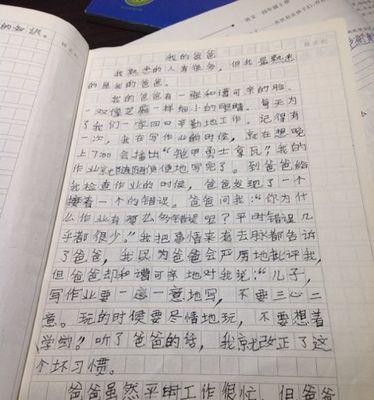 的知识。
我的爸爸
我熟悉的人有很多,但我最熟悉
的是我的爸爸。
我的爸爸有一张和谓可亲的脸。
一双像芝麻一样细小的眼睛。每天为
了我们一家四口辛勤地工作。记得有
一次,我在写作业的时候,就在想晚
上7:00会播出“铠甲勇士拿瓦”我的
作业就随随便便地写完了。到爸爸给
我检查作业的时候,爸爸发现了一个
接着一个的错误。爸爸问我:“你为什
么作业有那么多错误呢?平时错误几
乎都很少。”我把事情来有去脉都告诉
了爸爸,我以为爸爸会严厉地批评我,
但爸爸却和谓可亲地对我说:“儿子,
写作业要一心一意地写,不要三心二
意。玩的时候要尽情地玩,不要想着
学的。”听了爸爸的话,我就改正了这
个坏习惯。
爸爸虽然平时工作很忙,但爸爸